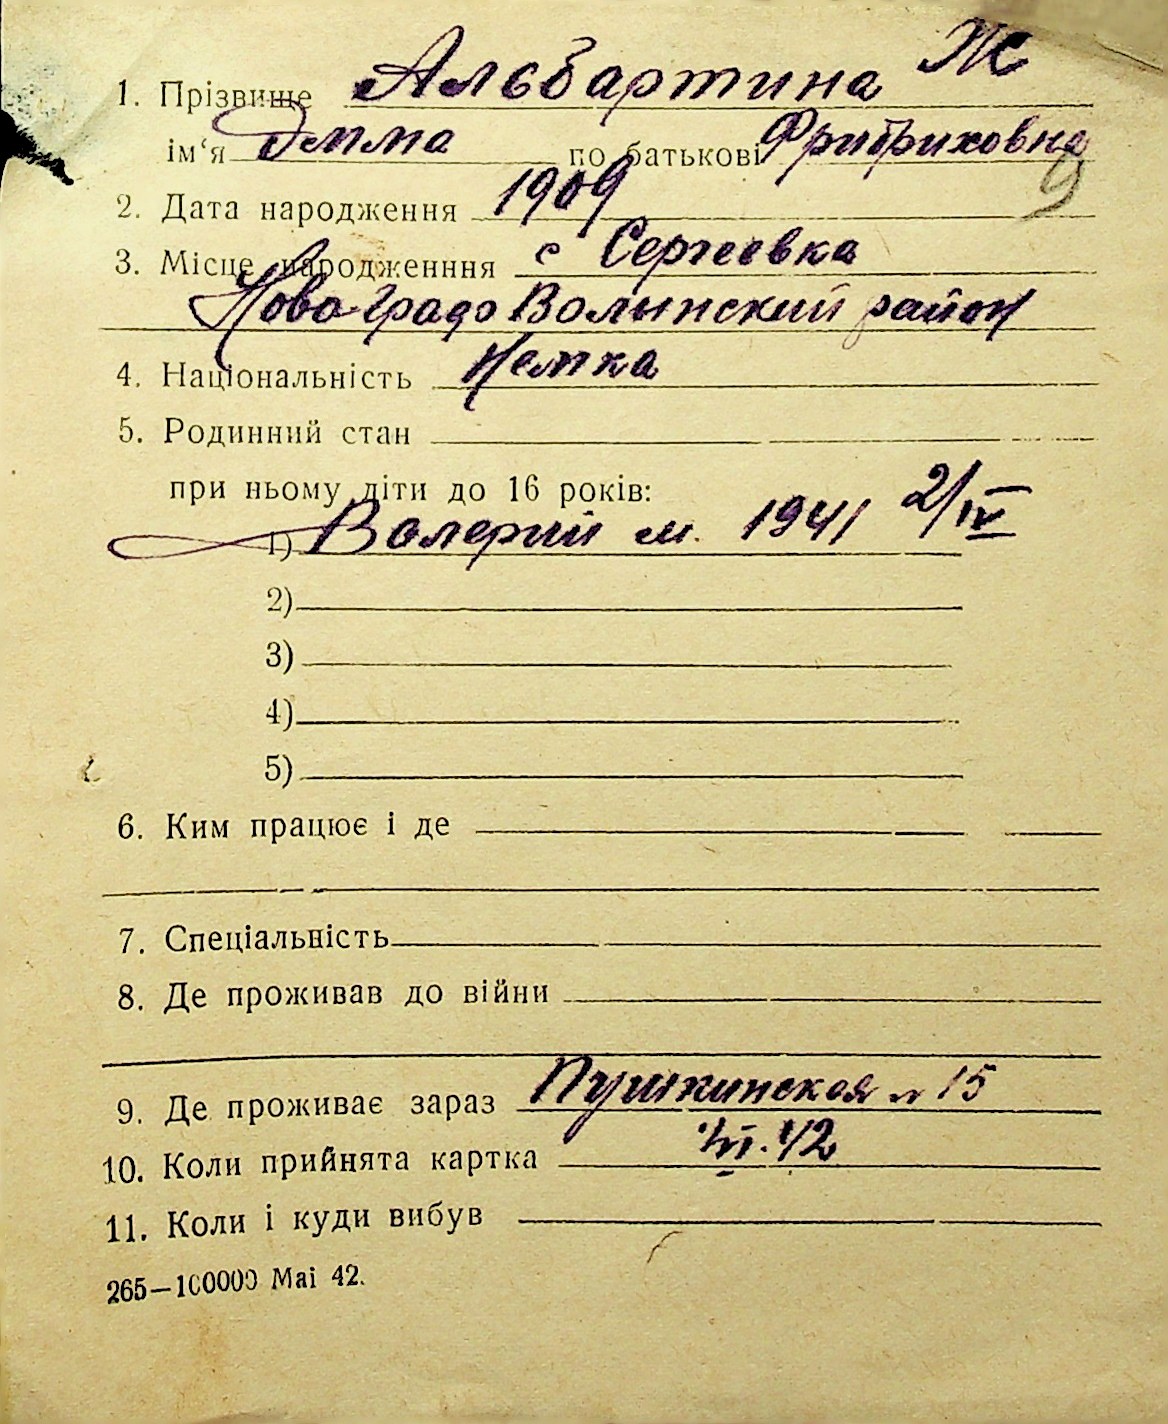 1. Прізвище Альбартина Ж
ім'я Эмма по батькові Фридриховна
9
2. Дата народження 1909
3. Місце народженння с Сергеевка
Ново градо Волынский район
4. Національність Немка
5. Родинний стан
при ньому діти до 16 років:
1) Валерий м. 1941 2/IV
2)
3)
4)
5)
6. Ким працює і де
7. Спеціальність
8. Де проживав до війни
9. Де проживає зараз Пушкинская № 15
10. Коли прийнята картка VI. 42
11. Коли і куди вибув
265—100000 Mai 42.